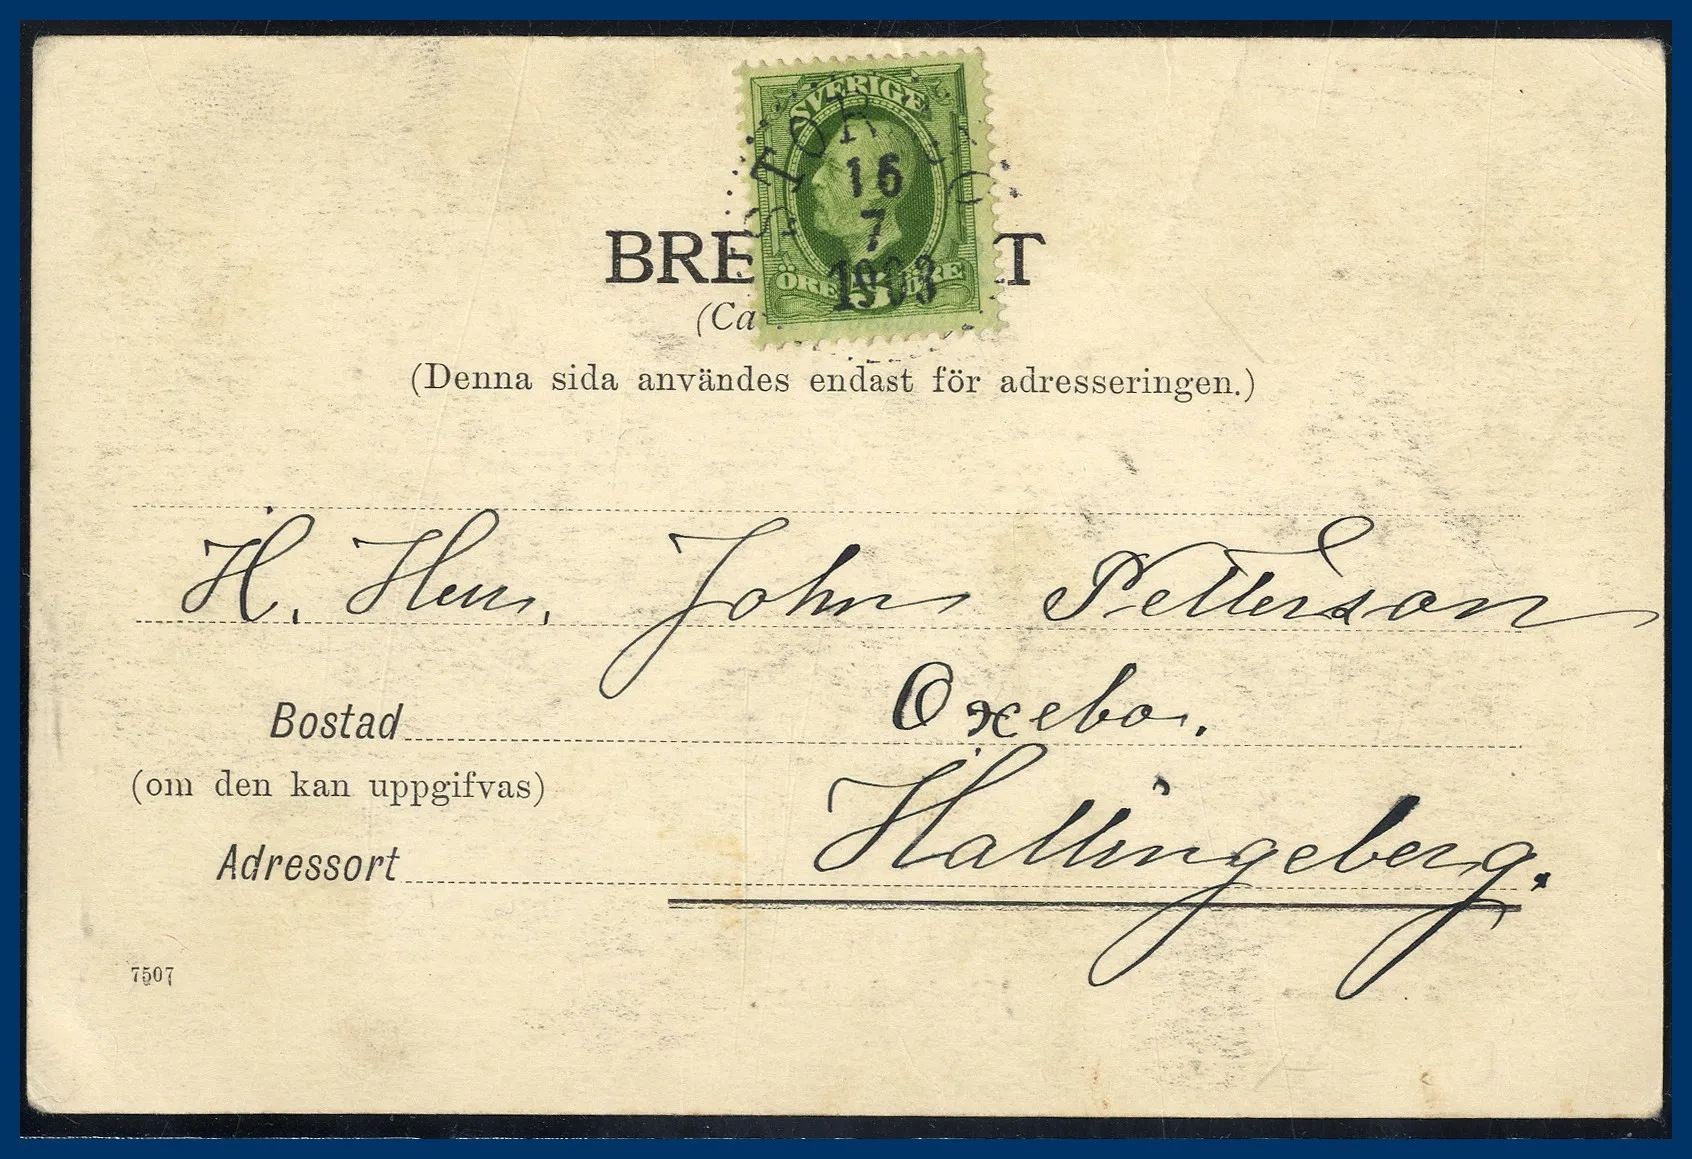 SVERIGE
STOR
16
7
1903
ÖRE 5 ÖRE
BRE T
(Ca
(Denna sida användes endast för adresseringen.)
H. Herr. John Petterson
Bostad Oxebo.
(om den kan uppgifvas)
Adressort Hallingeberg.
7507